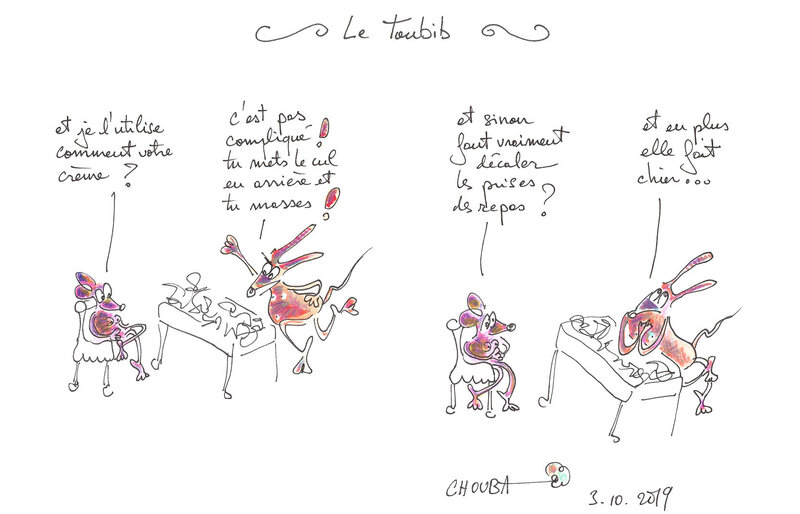 Le Toubib
et je l'utilise
comment votre
crème ?
c'est pas
compliqué !
tu mets le cul
en arrière et
tu masses !
et sinon
faut vraiment
décaler
les prises
des repas ?
et en plus
elle fait
chier...
CHOUBA
3.10.2019